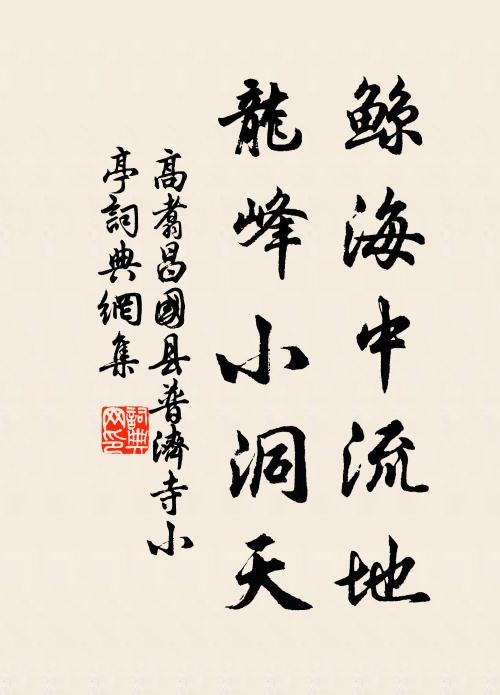 鲸海中流地
龍峰小洞天
高翥昌國县普濟寺小
亭詞典網集
詞典
网印